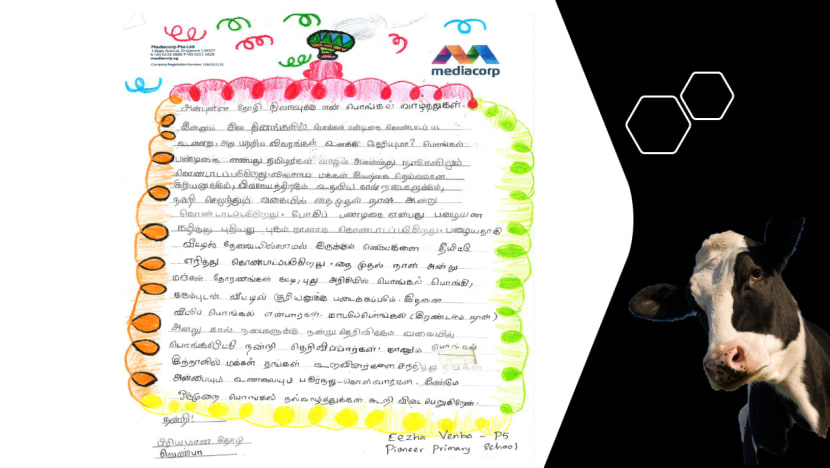 Mediacorp Pte Ltd
mediacorp.sg
mediacorp
அன்புள்ள தோழி நிலாவுக்கு என் பொங்கல் வாழ்த்துகள்.
இன்னும் இல தினங்களில் பொங்கல் பண்டிகை கொண்டாடப் பட
உள்ளது. அது பற்றிய விவரங்கள் உனக்கு தெரியுமா? பொங்கல்
பண்டிகை என்பது தமிழர்கள் வாழும் அனைத்து நாடுகளிலும்
கொண்டாடப்படுகிறது. விவசாய மக்கள் இயற்கை தெய்வமான
சூரியனுக்கும், விவசாயத்திற்கு உதவிய கால் நடைகளுக்கும்,
நன்றி செலுத்தும் வகையில் தை முதல் நாள் அன்று
கொண்டாடப்படுகிறது. போகிப் பண்டிகை என்பது பழையன
கழிந்து புதியது புகும் நாளாக கொண்டாடப்படுகிறது. பழையதாக
வீட்டில் தேவையில்லாமல் இருக்கும் பொருட்களை தீயிட்டு
எரித்து கொண்டாடப்படுகிறது. தை முதல் நாள் அன்று
மக்கள் தோரணங்கள் கட்டி, புது அரிசியில் பொங்கல் பொங்கி,
கரும்புடன் வீட்டில் சூரியனுக்கு படைக்கப்படும். இதனை
வீட்டுப் பொங்கல் என்பார்கள். மாட்டுப்பொங்கல் (இரண்டாம் நாள்)
அன்று கால் நடைகளுக்கு நன்றி தெரிவிக்கும் வகையில்
பொங்கலிட்டு நன்றி தெரிவிப்பார்கள். காணும் பொங்கல்
இந்நாளில் மக்கள் தங்கள் உறவினர்களை சந்தித்து தங்கள்
அன்பையும் உணவையும் பகிர்ந்து கொள்வார்கள். மீண்டும்
ஒருமுறை பொங்கல் நல்வாழ்த்துக்கள் கூறி விடைபெறுகிறேன்.
நன்றி!
பிரியமான தோழி
வெண்பா
Eezha Venba - P5
Pioneer Primary School